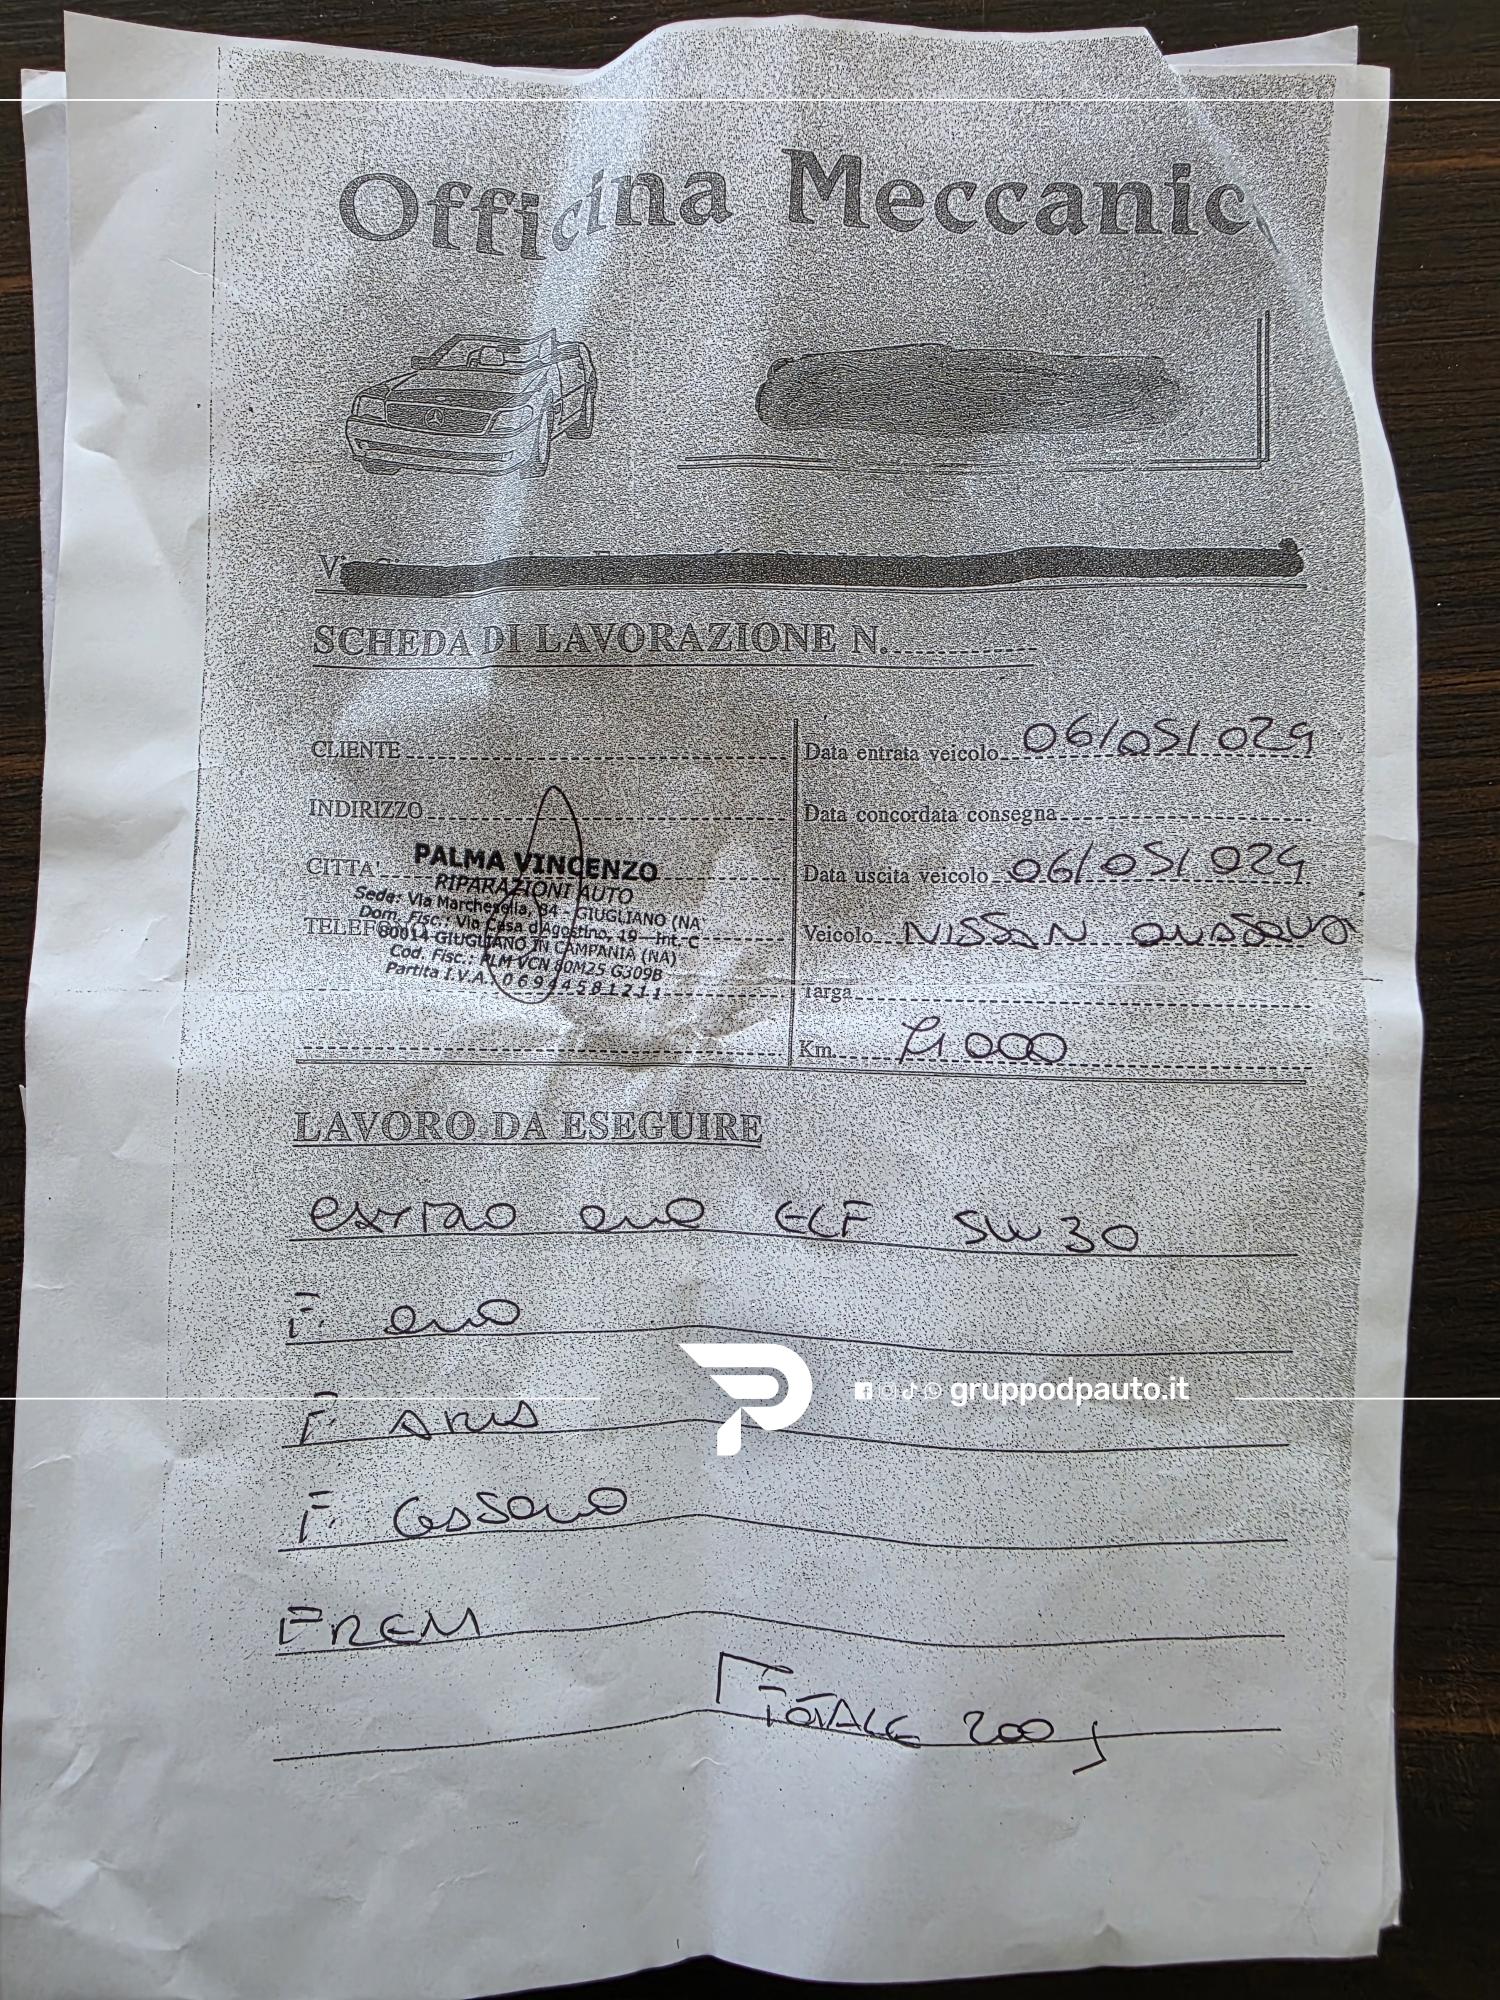 Officina Meccanica
SCHEDA DI LAVORAZIONE N.
CLIENTE
INDIRIZZO
CITTA'
TELEF
PALMA VINCENZO
RIPARAZIONI AUTO
Sede: Via Marchesella, 84 - GIUGLIANO (NA
Dom. Fisc.: Via Casa d'Agostino, 19 - Int. C
80014 GIUGLIANO IN CAMPANIA (NA)
Cod. Fisc.: PLM VCN 80M25 G309B
Partita I.V.A.: 06944581211
Data entrata veicolo 06/05/024
Data concordata consegna
Data uscita veicolo 06/05/024
Veicolo NISSAN
Targa
Km. 71000
LAVORO DA ESEGUIRE
ELF 5W30
F.
F. ARIA
F.
FRENI
TOTALE 200
gruppodpauto.it